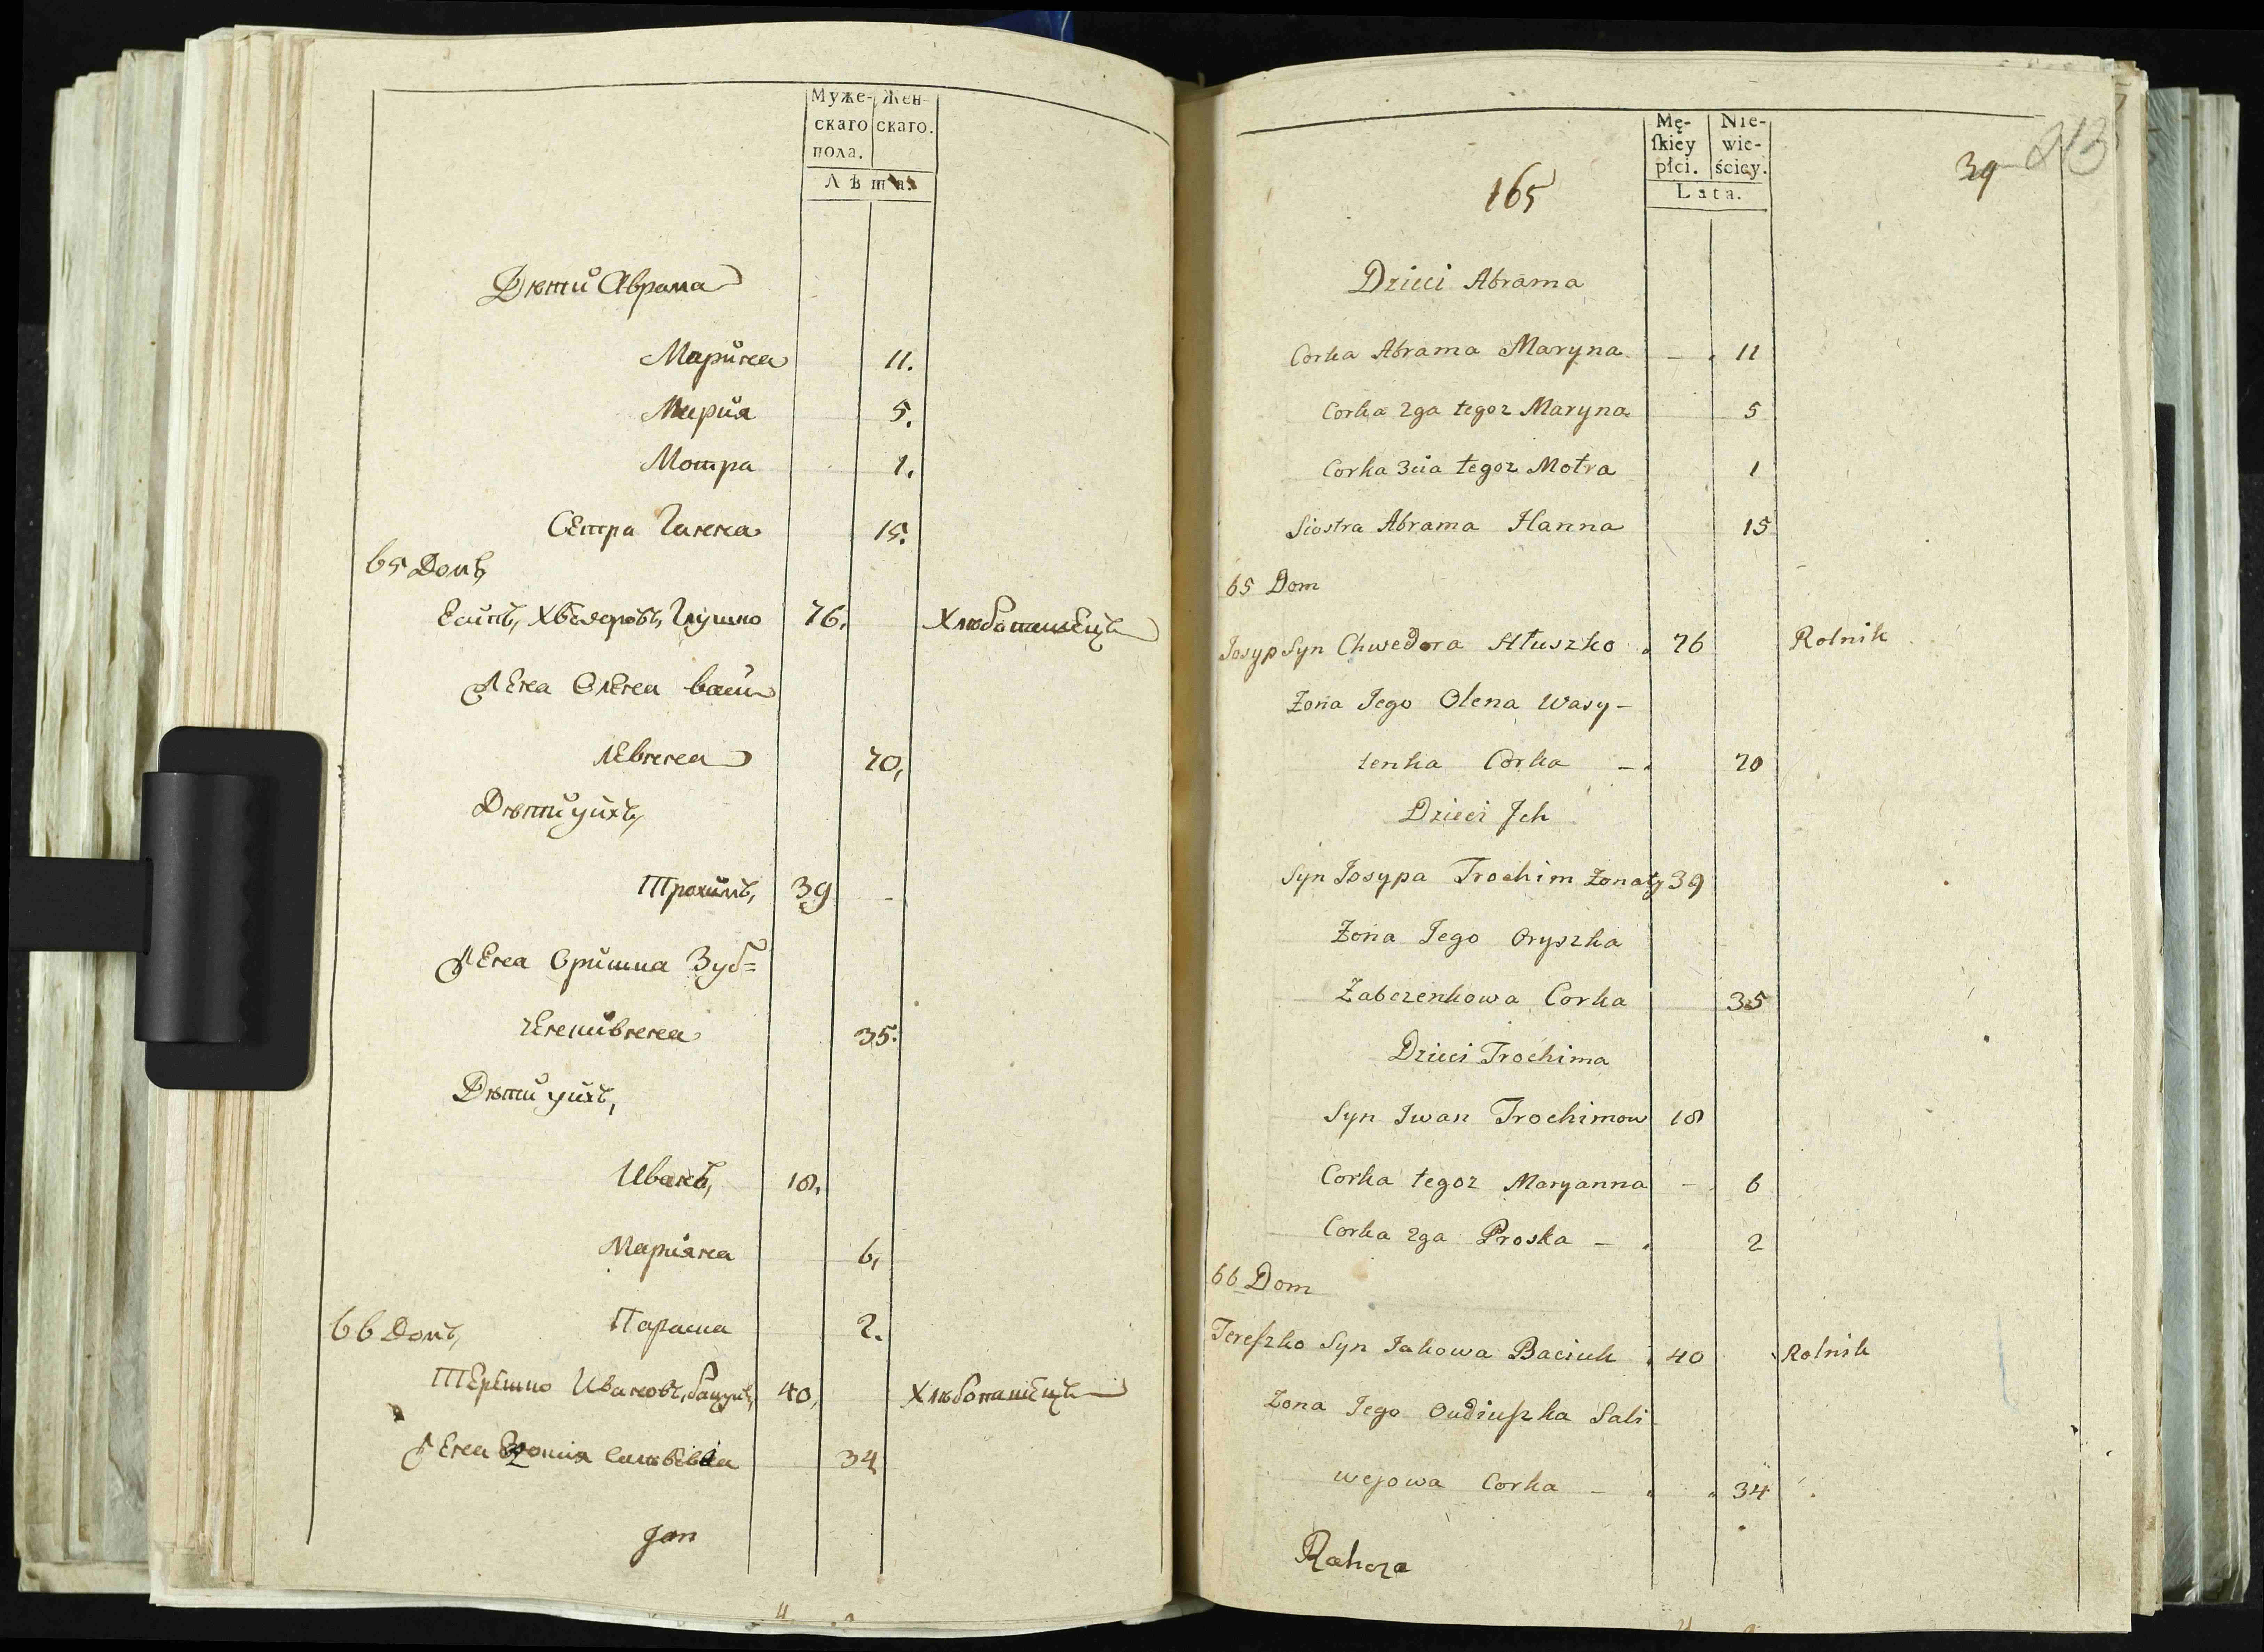 Муже- Жен-
скаго скаго.
пола.
Лѣта.
Дѣти Аврама
Марина 11.
Мария 5.
Мотра 1.
Сестра Ганна 15.
65 Домъ
Глушко 76. Хлѣбопашецъ
Жена Олена Васи
левнена 70,
Дѣти ихъ,
Трохимъ, 39
Жена Оришка Зуб=
35.
Дѣти ихъ,
Иванъ, 18.
Марияна 6,
66 Домъ, Параска 2.
Терешко 40, Хлѣбопашецъ
Жена 34
Jan
Mę- Nie-
ſkiey wie-
płci. ściey.
Lata.
165
39 213
Dzieci Abrama
Corka Abrama Maryna - 11
Corka 2ga tegoz Maryna 5
Corka 3cia tegoz Motra 1
Siostra Abrama Hanna 15
65 Dom
Josyp Syn Chwedora Hłuszko 76 Rolnik
Zona Jego Olena Wasy-
lenka Corka - 70
Dzieci Jch
Syn Josypa Trochim Zonaty 39
Zona Jego Oryszka
Zabczenkowa Corka 35
Dzieci Trochima
Syn Iwan Trochimow 18
Corka tegoz Maryanna - 6
Corka 2ga Proska - 2
66 Dom
Tereſzko Syn Jakowa Baciuk 40 Rolnik
Zona Jego Oudiuſzka Sali
wejowa Corka - 34
Rahoza